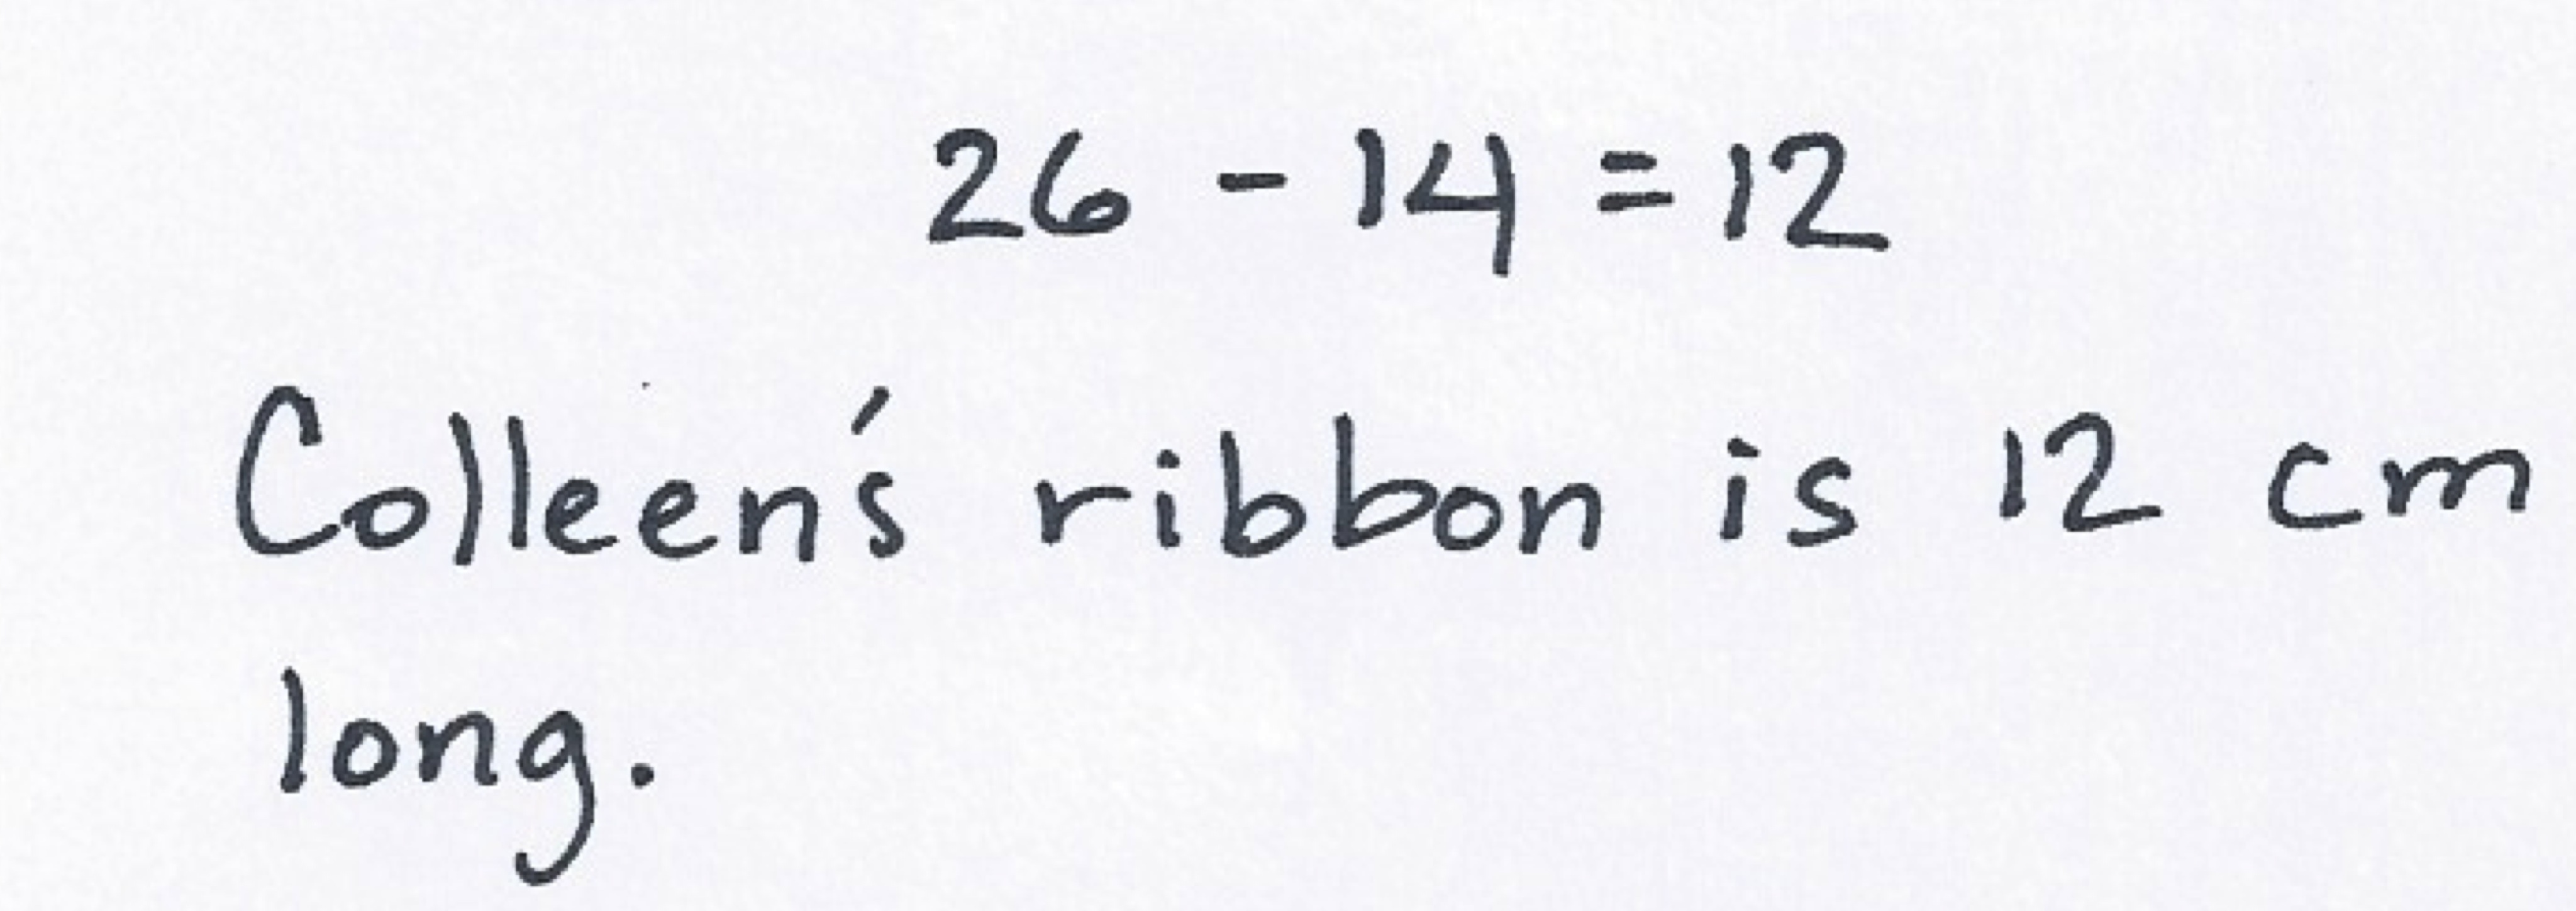 26 - 14 = 12
Colleen's ribbon is 12 cm
long.